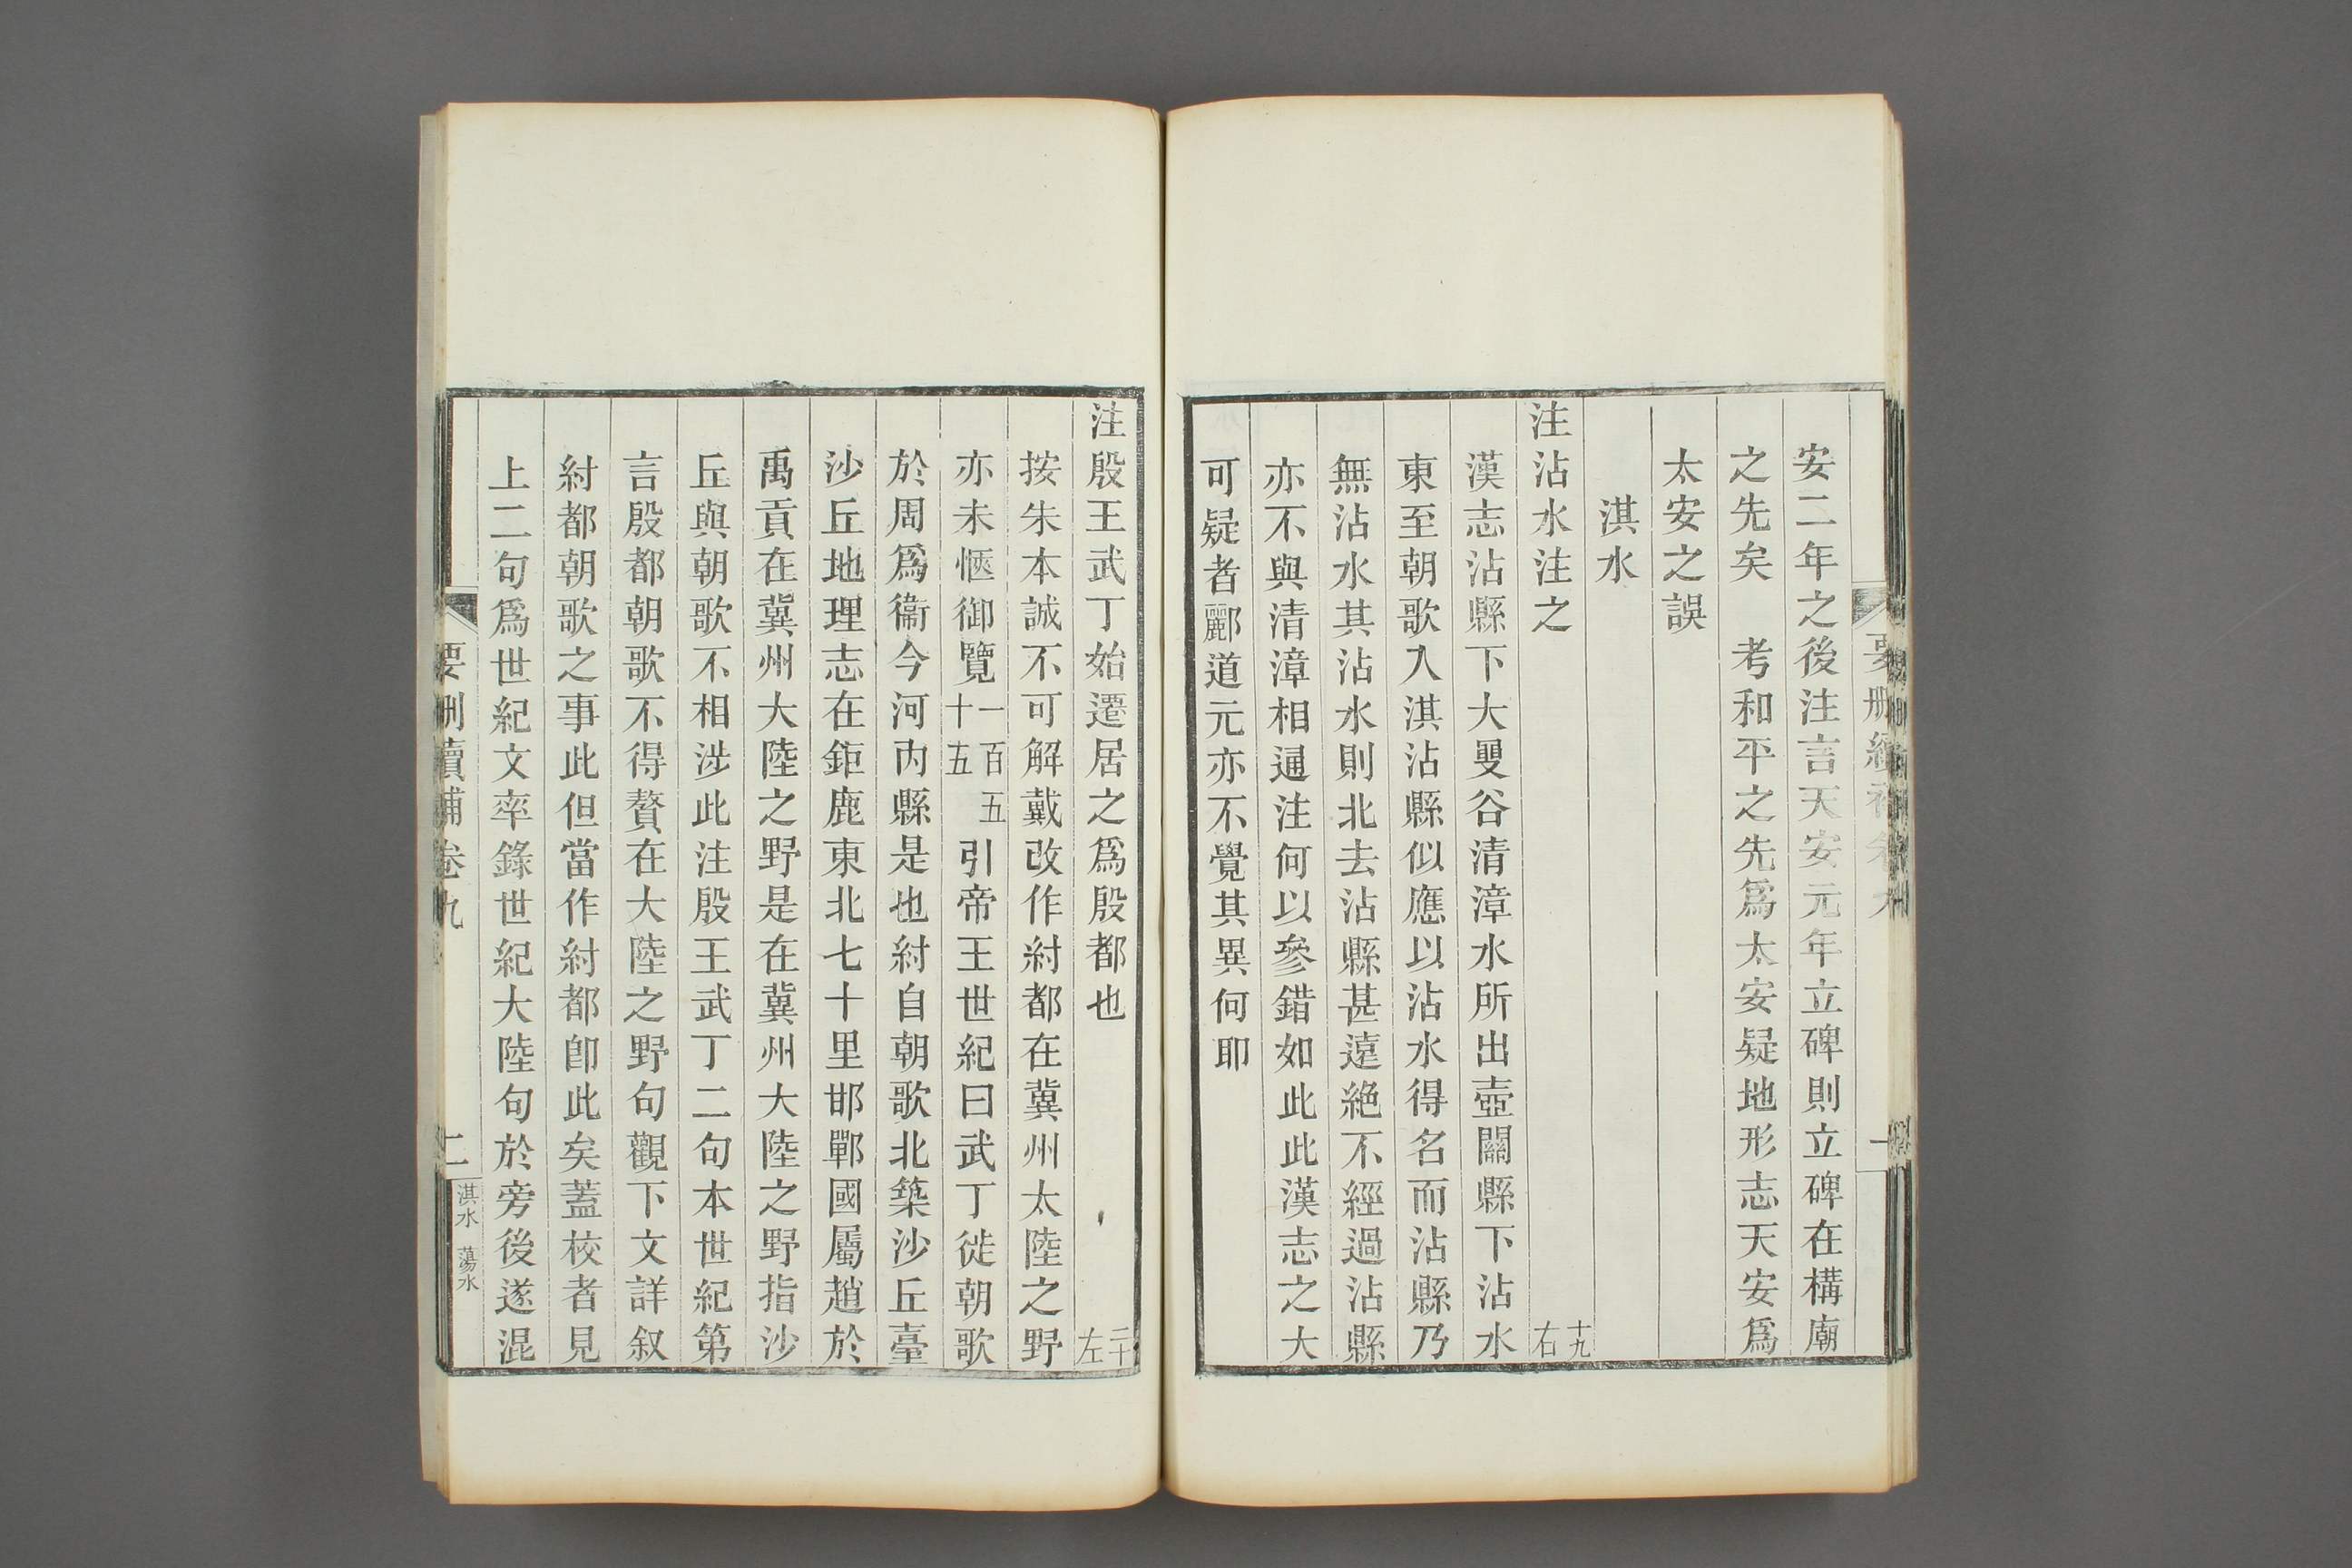 安二年之後注言天安元年立碑則立碑在構廟
之先矣　考和平之先爲太安疑地形志天安爲
太安之誤
淇水
注沾水注之　十九右
漢志沾縣下大𠭥谷清漳水所出壺關縣下沾水
東至朝歌入淇沾縣似應以沾水得名而沾縣乃
無沾水其沾水則北去沾縣甚遠絶不經過沾縣
亦不與清漳相通注何以參錯如此此漢志之大
可疑者酈道元亦不覺其異何耶
注殷王武丁始遷居之爲殷都也　二十左
按朱本誠不可解戴改作紂都在冀州太陸之野
亦未愜御覽一百五十五引帝王世紀曰武丁徙朝歌
於周爲衞今河内縣是也紂自朝歌北築沙丘臺
沙丘地理志在鉅鹿東北七十里邯鄲國屬趙於
禹貢在冀州大陸之野是在冀州大陸之野指沙
丘與朝歌不相涉此注殷王武丁二句本世紀第
言殷都朝歌不得贅在大陸之野句觀下文詳叙
紂都朝歌之事此但當作紂都卽此矣蓋校者見
上二句爲世紀文率錄世紀大陸句於旁後遂混
要刪續補卷九　二　淇水　蕩水